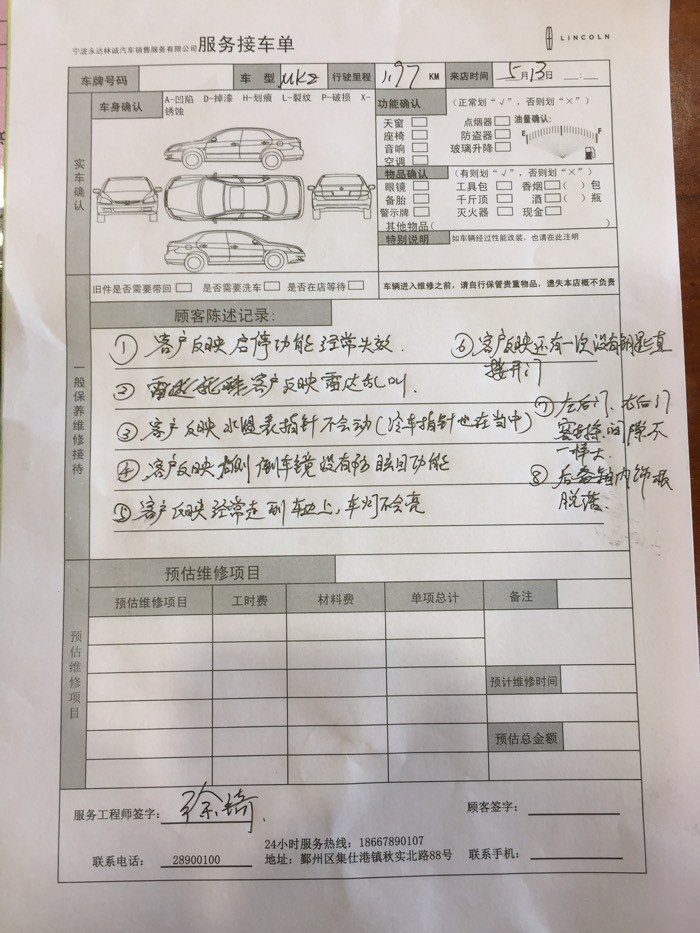 宁波永达林诚汽车销售服务有限公司 服务接车单
LINCOLN
车牌号码 车 型 MKZ 行驶里程 197 KM 来店时间 5月13日 __:__
实车确认
车身确认 A-凹陷 D-掉漆 H-划痕 L-裂纹 P-破损 X-锈蚀
功能确认 (正常划“√”,否则划“×”)
天窗 点烟器 油量确认:
座椅 防盗器 E F
音响 玻璃升降
空调
物品确认 (有则划“√”,否则划“×”)
眼镜 工具包 香烟 ( )包
备胎 千斤顶 酒 ( )瓶
警示牌 灭火器 现金
其他物品( )
特别说明 如车辆经过性能改装,也请在此注明
旧件是否需要带回 是否需要洗车 是否在店等待
车辆进入维修之前,请自行保管贵重物品,遗失本店概不负责
一般保养维修接待
顾客陈述记录:
① 客户反映启停功能经常失效.
② 客户反映雷达乱叫.
③ 客户反映水温表指针不会动(冷车指针也在当中)
④ 客户反映 倒车镜没有防眩目功能
⑤ 客户反映经常走到车边上,车灯不会亮
⑥ 客户反映还有一次没有钥匙直
接开门
⑦ 左后门、右后门
间隙不
一样大.
⑧ 后备箱内饰板
脱落.
预估维修项目
预估维修项目
预估维修项目 工时费 材料费 单项总计 备注
预计维修时间
预估总金额
服务工程师签字: 徐琦 顾客签字:
24小时服务热线:18667890107
联系电话: 28900100 地址:鄞州区集仕港镇秋实北路88号 联系手机: